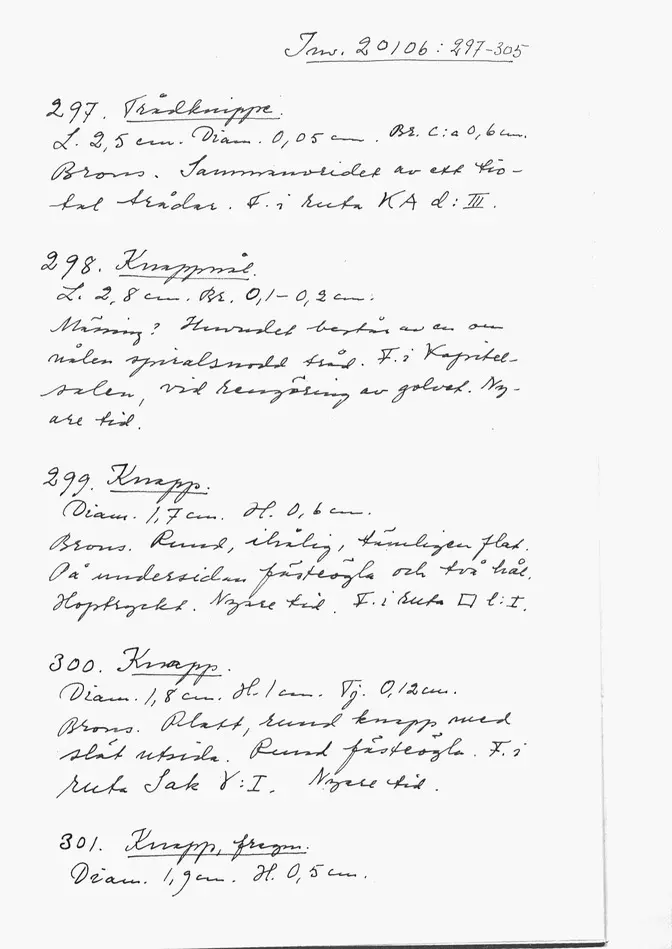 Inv. 20106: 297-305
297. Trådknippe.
L. 2,5 cm. Diam. 0,05 cm. Br. c:a 0,6 cm.
Brons. Sammanvridet av ett tio-
tal trådar. F. i ruta KA d: III.
298. Knappnål.
L. 2,8 cm. Br. 0,1-0,2 cm.
Mässing? Huvudet består av en om
nålen spiralsnodd tråd. F. i Kapitel-
salen, vid rengöring av golvet. Ny-
are tid.
299. Knapp.
Diam. 1,7 cm. H. 0,6 cm.
Brons. Rund, ihålig, tämligen flat.
På undersidan fästeögla och två hål.
Hoptryckt. Nyare tid. F. i ruta □ l: I.
300. Knapp.
Diam. 1,8 cm. H. 1 cm. Tj. 0,12 cm.
Brons. Platt, rund knapp med
slät utsida. Rund fästeögla. F. i
ruta Sak γ: I. Nyare tid.
301. Knapp, fragm.
Diam. 1,9 cm. H. 0,5 cm.